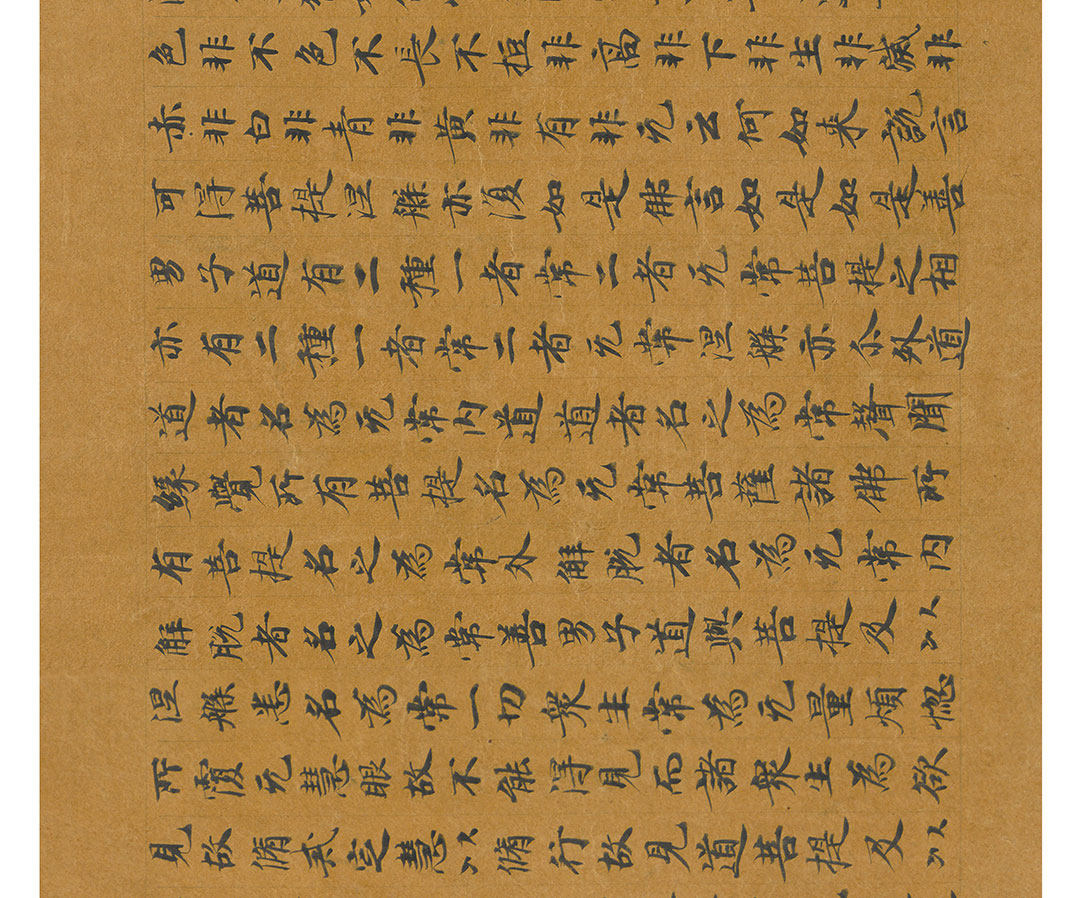 色非不色不長不短非高非下非生非滅非
赤非白非青非黃非有非无云何如来說言
可得菩提涅槃亦復如是佛言如是如是善
男子道有二種一者常二者无常菩提之相
亦有二種一者常二者无常涅槃亦尒外道
道者名為无常内道道者名之為常聲聞
緣覺所有菩提名為无常菩薩諸佛所
有菩提名之為常外解脫者名為无常内
解脫者名之為常善男子道與菩提及以
涅槃悉名為常一切衆生常為无量煩惱
所覆无慧眼故不能得見而諸衆生為欲
見故脩戒定慧以脩行故見道菩提及以